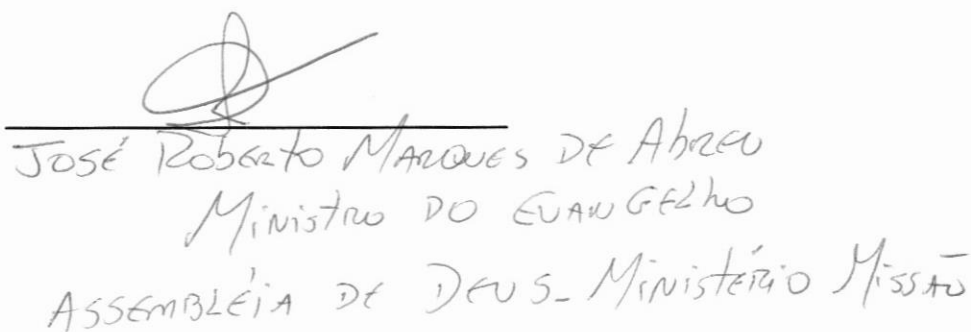 José Roberto Marques de Abreu
Ministro do Evangelho
Assembléia de Deus - Ministério Missão